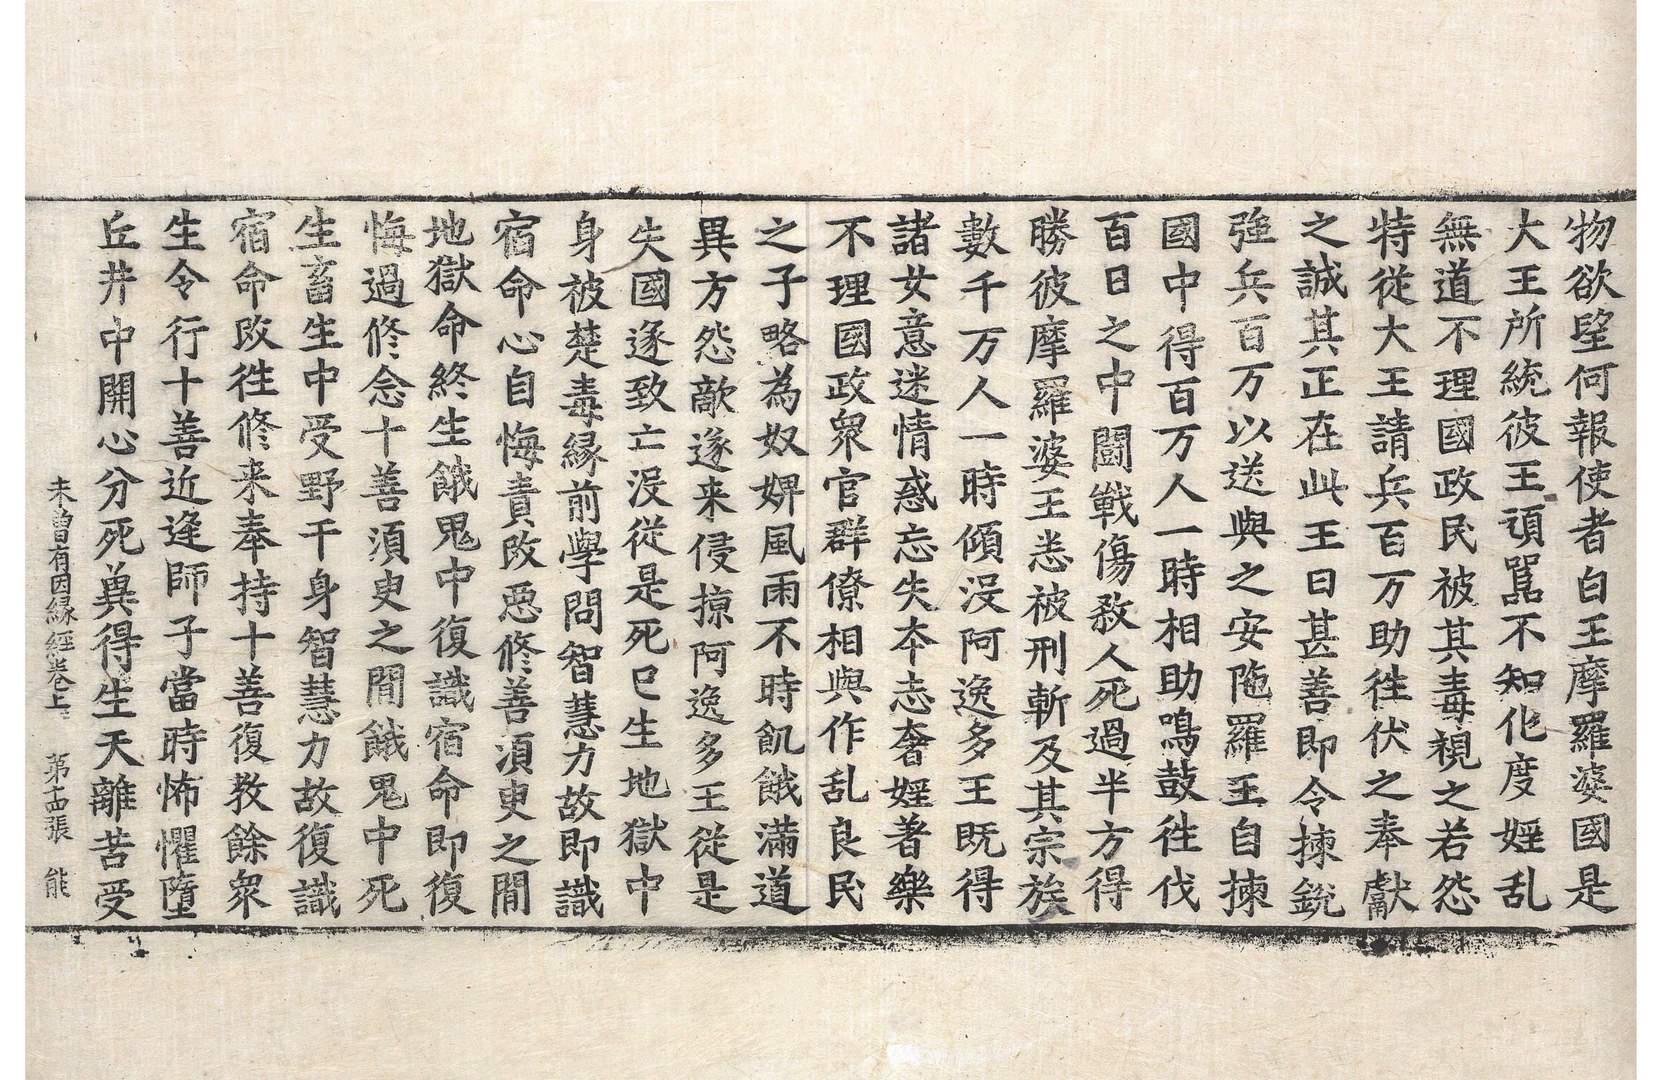 物欲望何報使者白王摩羅婆國是
大王所統彼王頑嚚不知化度婬乱
無道不理國政民被其毒視之若怨
特從大王請兵百万助往伏之奉獻
之誠其正在此王曰甚善即令揀銳
強兵百万以送與之安陁羅王自揀
國中得百万人一時相助鳴鼓往伐
百日之中鬪戰傷煞人死過半方得
勝彼摩羅婆王悉被刑斬及其宗族
數千万人一時傾沒阿逸多王既得
諸女意迷情惑忘失本志奢婬著樂
不理國政衆官群僚相與作乱良民
之子略為奴婢風雨不時飢餓滿道
異方怨敵遂来侵掠阿逸多王從是
失國遂致亡沒從是死已生地獄中
身被楚毒緣前學問智慧力故即識
宿命心自悔責改惡修善須臾之間
地獄命終生餓鬼中復識宿命即復
悔過修念十善須臾之間餓鬼中死
生畜生中受野干身智慧力故復識
宿命改往修来奉持十善復教餘衆
生令行十善近逢師子當時怖懼墮
丘井中開心分死兾得生天離苦受
未曾有因緣經卷上　第十四張　能